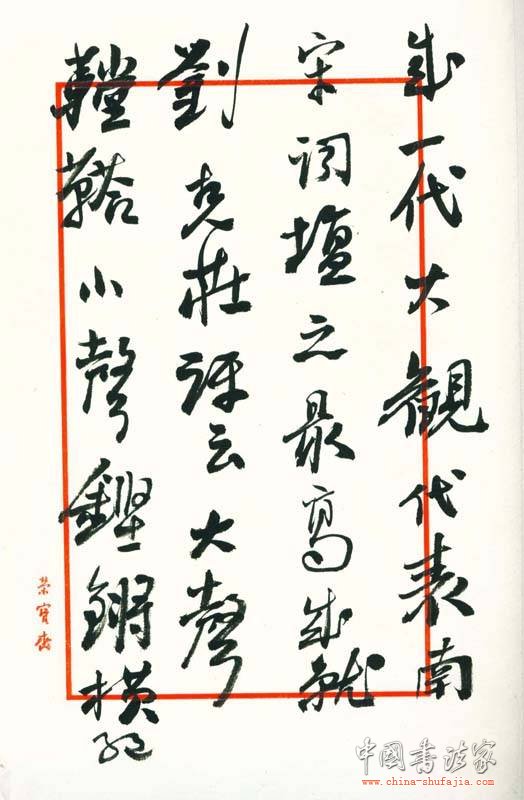 成一代大觀代表南
宋詞壇之最高成就
劉克莊評云大聲
鞺鞳小聲鏗鏘橫絕
榮寶齋
中国书法家
www.china-shufajia.com